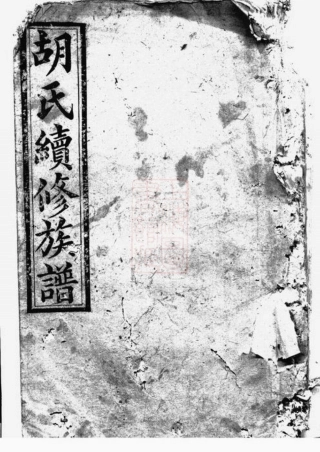 胡氏續修族譜